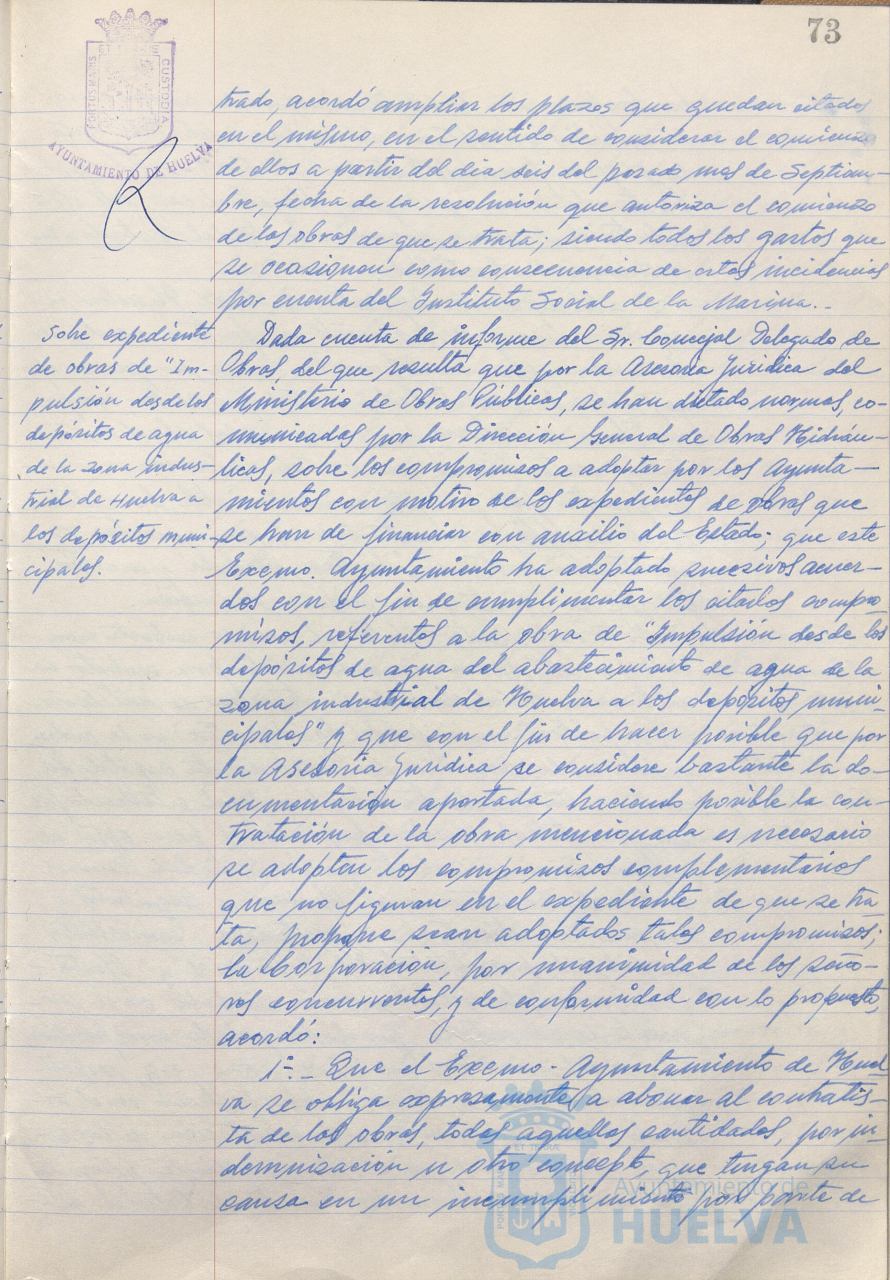 73
PORTUS MARIS ET TERRAE CUSTODIA
AYUNTAMIENTO DE HUELVA
trado, acordó ampliar los plazos que quedan citados
en el mismo, en el sentido de considerar el comienzo
de ellos a partir del dia seis del pasado mes de Septiem-
bre, fecha de la resolución que autoriza el comienzo
de las obras de que se trata; siendo todos los gastos que
se ocasionen como consecuencia de estas incidencias
por cuenta del Instituto Social de la Marina.-
Sobre expediente
de obras de "Im-
pulsión desde los
depósitos de agua
de la zona indus-
trial de Huelva a
los depósitos muni-
cipales.
Dada cuenta de informe del Sr. Concejal Delegado de
Obras del que resulta que por la Asesoria Juridica del
Ministerio de Obras Públicas, se han dictado normas, co-
municadas por la Dirección General de Obras Hidráu-
licas, sobre los compromisos a adoptar por los Ayunta-
mientos con motivo de los expedientes de obras que
se han de financiar con auxilio del Estado; que este
Excmo. Ayuntamiento ha adoptado sucesivos acuer-
dos con el fin de cumplimentar los citados compro-
misos, referentes a la obra de "Impulsión desde los
depósitos de agua del abastecimiento de agua de la
zona industrial de Huelva a los depósitos muni-
cipales" y que con el fin de hacer posible que por
la Asesoria Juridica se considere bastante la do-
cumentación aportada, haciendo posible la con-
tratación de la obra mencionada es necesario
se adopten los compromisos complementarios
que no figuran en el expediente de que se tra-
ta, propone sean adoptados tales compromisos;
la Corporación, por unanimidad de los seño-
res concurrentes, y de conformidad con lo propuesto,
acordó:
1º.- Que el Excmo. Ayuntamiento de Huel-
va se obliga expresamente a abonar al contratis-
ta de las obras, todas aquellas cantidades, por in-
demnización u otro concepto, que tengan su
causa en un incumplimiento por parte de
Ayuntamiento de
HUELVA